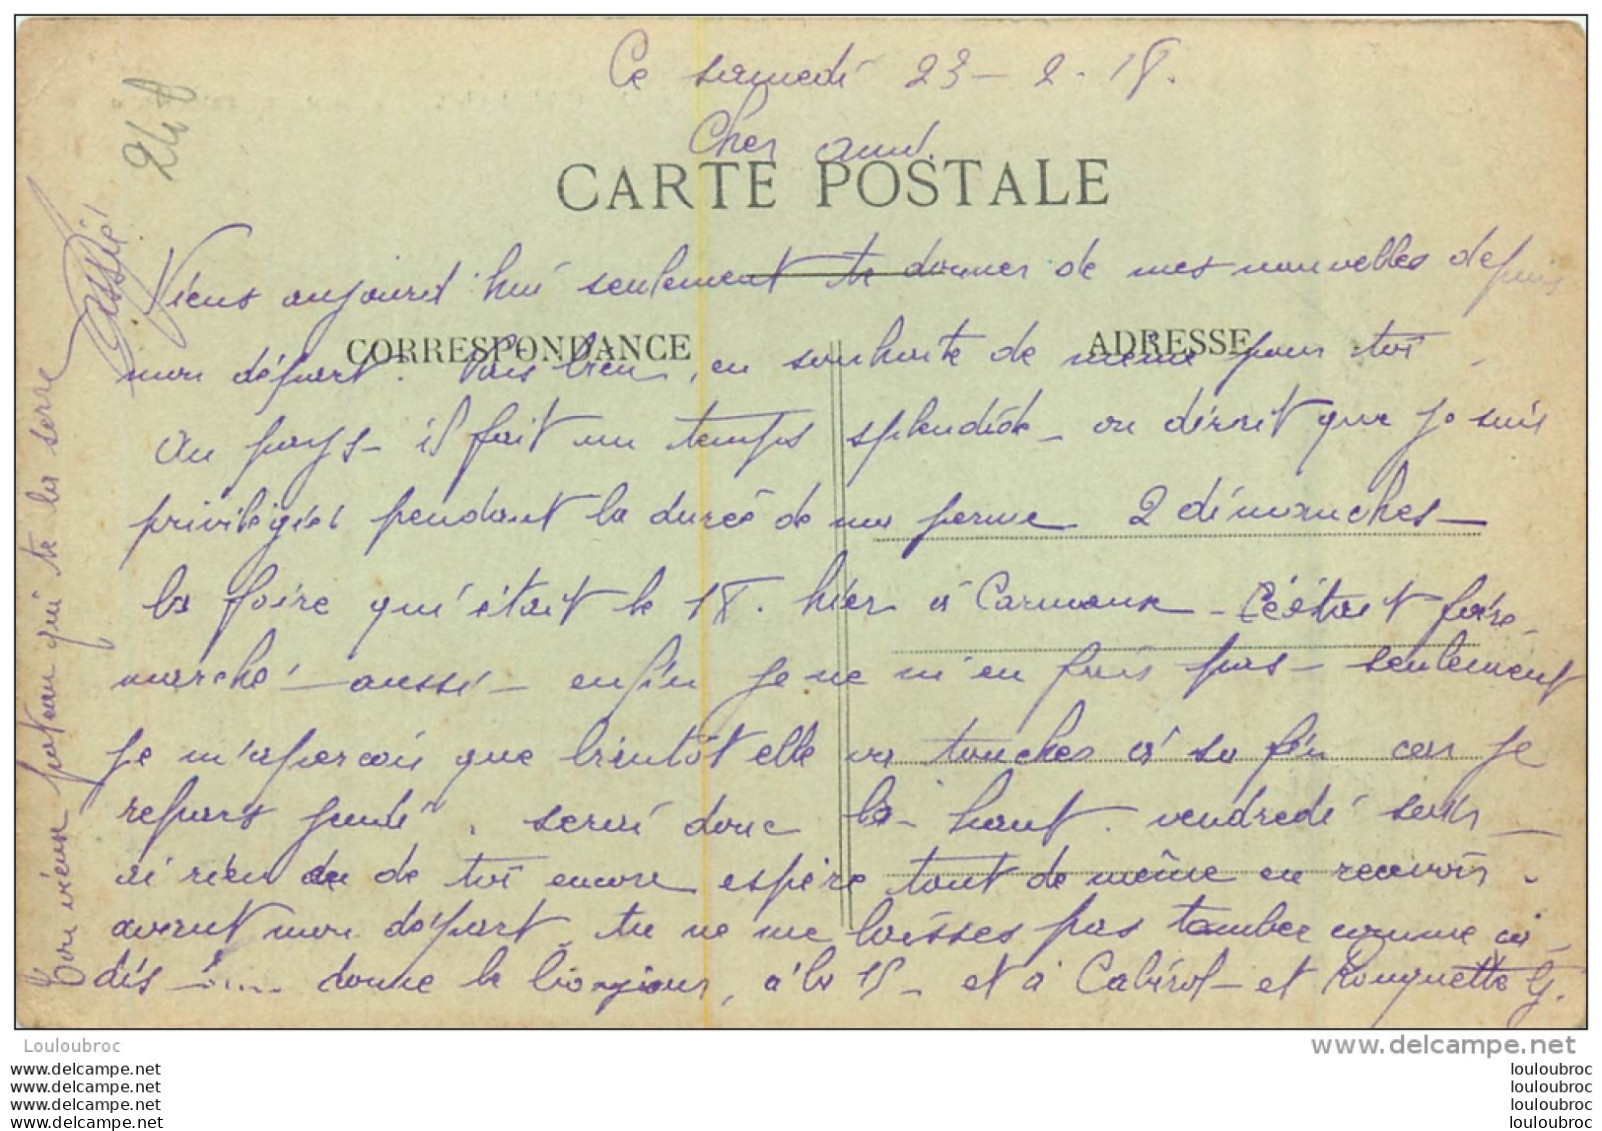 Ce samedi 23 - 2. 18.
Cher ami.
248
CARTE POSTALE
Viens aujourd hui seulement te donner de mes nouvelles depuis
CORRESPONDANCE
ADRESSE
mon départ. Vais bien, en souhaite de même pour toi.
Au pays - il fait un temps splendide - on dirait que je suis
privilégié pendant la durée de ma perme 2 dimanches -
la foire qu'était le 18. hier à Carmaux - C'était foire
marché - aussi - enfin je ne m'en fais pas - seulement
je m'aperçois que bientôt elle va touches à sa fin car je
repars jeudi. serai donc là-haut. vendredi soir -
ai rien de de toi encore espère tout de même en recevoir.
avant mon départ. tu ne me laisses pas tomber comme ça -
dis - !.... donne le bonjour, à la 15 - et à Cabirol - et Rouquette G.
Ton vieux poteau qui te la serre
Louloubroc
www.delcampe.net
www.delcampe.net
www.delcampe.net
www.delcampe.net
www.delcampe.net
louloubroc
louloubroc
louloubroc
louloubroc